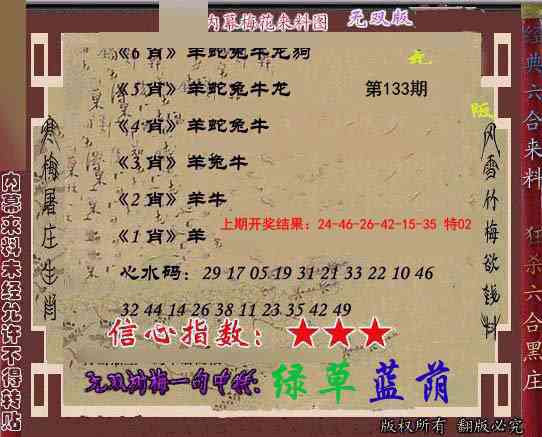 内幕梅花来料图 无双版
《6 肖》羊蛇兔牛龙狗
《5 肖》羊蛇兔牛龙 第133期
《4 肖》羊蛇兔牛
《3 肖》羊兔牛
《2 肖》羊牛
上期开奖结果：24-46-26-42-15-35 特02
《1 肖》羊
心水码：29 17 05 19 31 21 33 22 10 46
32 44 14 26 38 11 23 35 42 49
信心指数：★★★
无双 梅一句中特：绿草蓝荫
版权所有 翻版必究
寒梅屠庄生肖
风雪竹梅欲钱料
版
内幕来料未经允许不得转贴
经典六合来料
狂杀六合黑庄